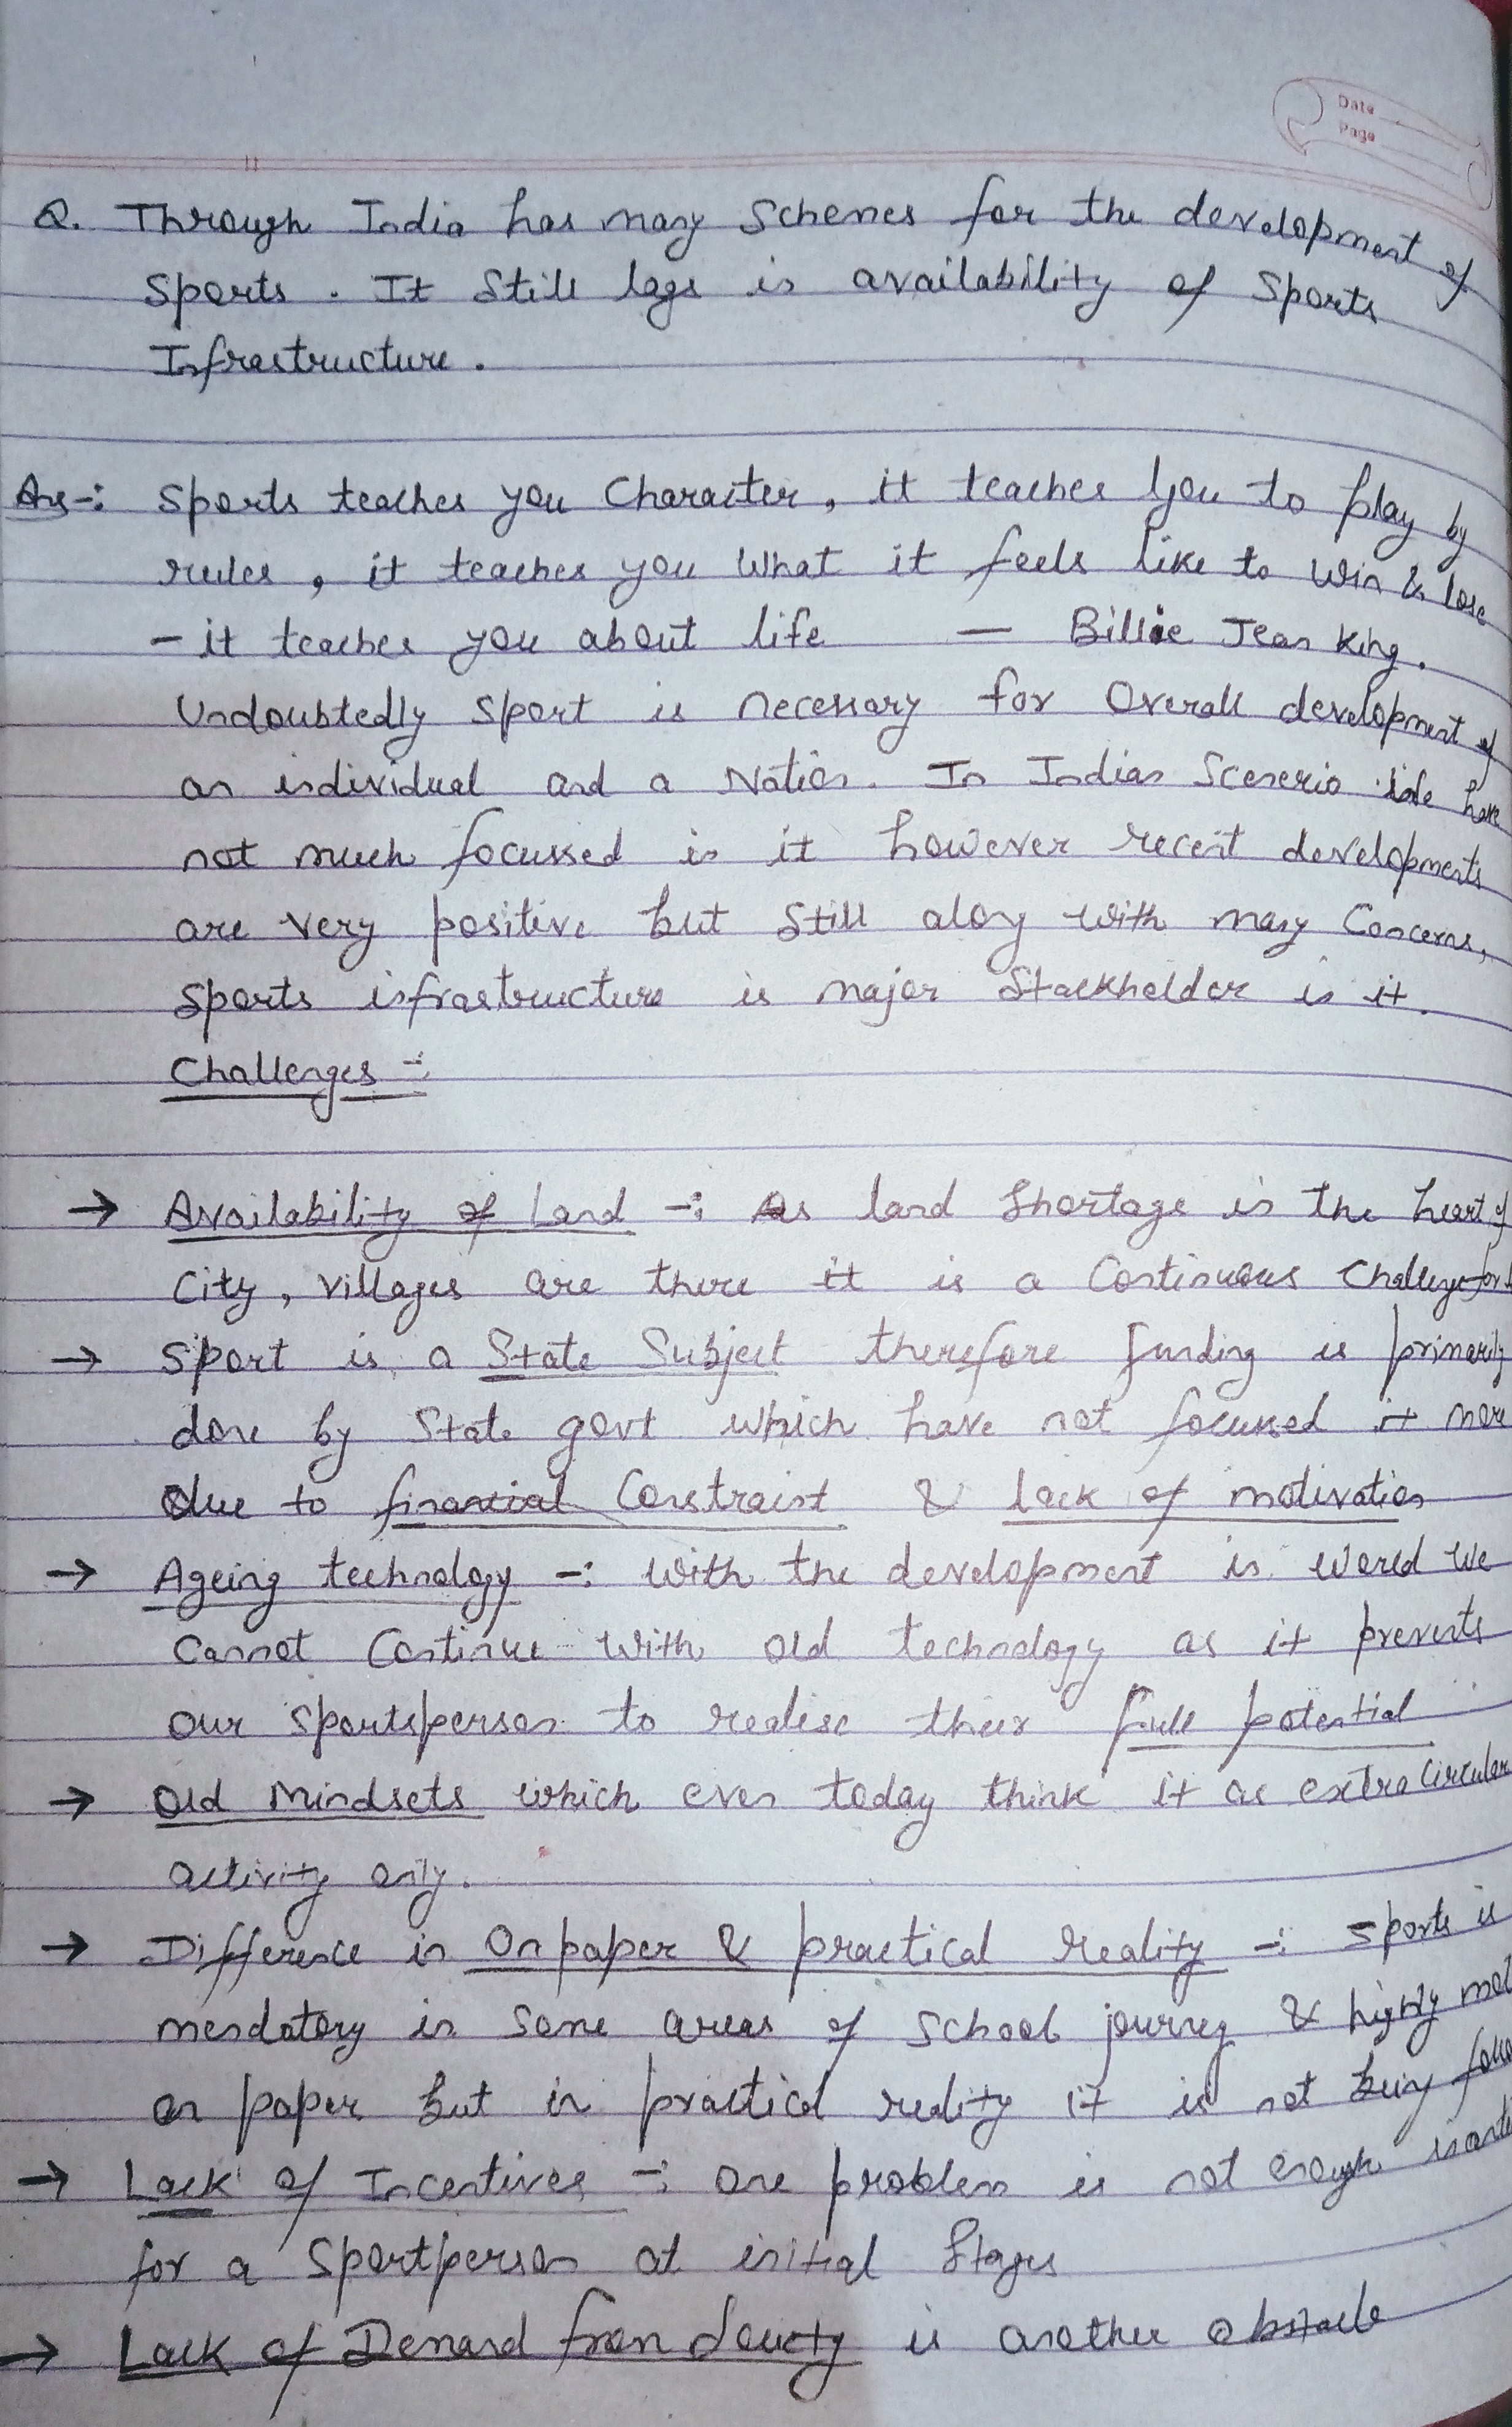 Date
Page
Q. Through India has many Schemes for the development of
Sports. It Still lags in availability of Sports
Infrastructure.
Ans-: Sports teaches you Character, it teaches you to play by
rules, it teaches you What it feels like to win & lose
- it teaches you about life — Billie Jean King.
Undoubtedly Sport is necessary for Overall development of
an individual and a Nation. In Indian Scenerio we have
not much focussed in it however recent developments
are very positive but Still along with many Concerns,
Sports infrastructure is major Stackholder in it.
Challenges -:
→ Availability of Land -: As land Shortage in the heart of
City, Villages are there it is a Continuous Challenge for
→ Sport is a State Subject therefore funding is primarily
done by State govt which have not focused it more
Due to financial Constraint & lack of motivation
→ Ageing technology -: With the development in World We
Cannot Continue With old technology as it prevents
our Sportsperson to realise their full potential
→ Old Mindsets which even today think it as extra Circular
activity only.
→ Difference in On paper & practical reality -: Sports is
mendatory in some areas of School journey & highly
on paper but in practical reality it is not being
→ Lack of Incentives -: One problem is not enough
for a Sportperson at initial Stages
→ Lack of Demand from Society is another obstacle